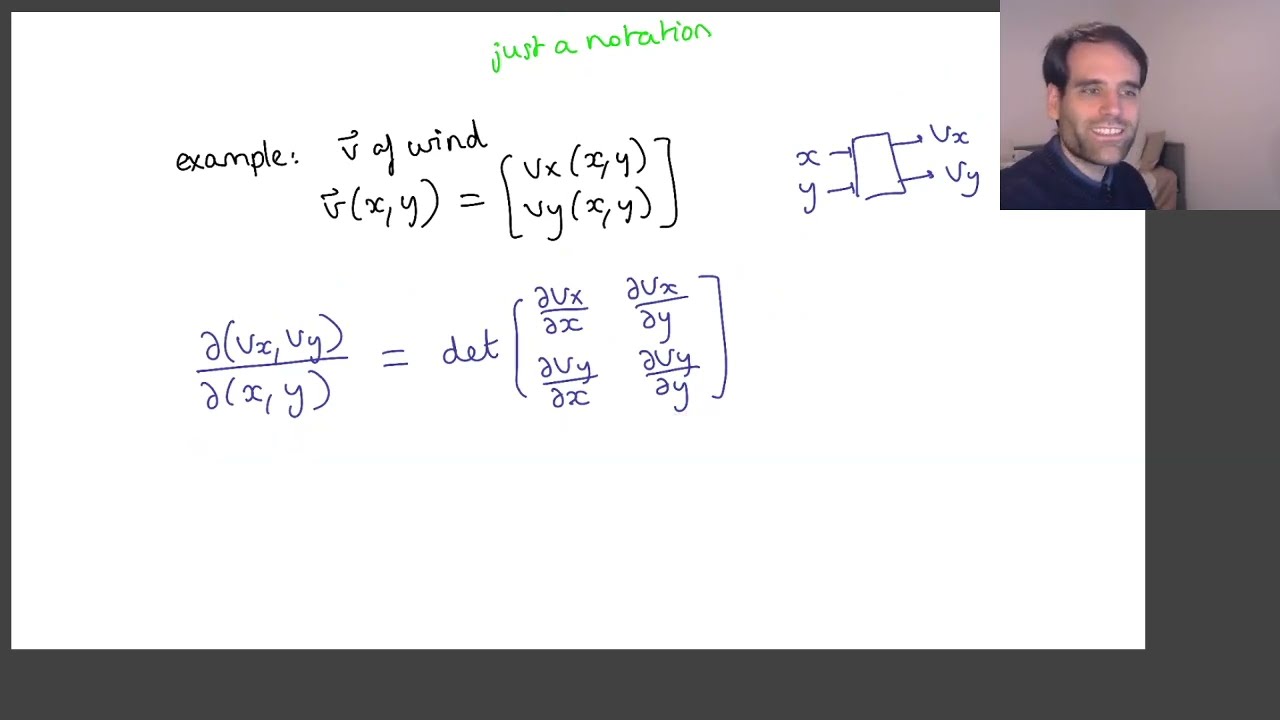 just a notation
example: v⃗ of wind
v⃗(x,y) = [ Vx(x,y)
Vy(x,y) ]
x
y
Vx
Vy
∂(Vx,Vy)/∂(x,y) = det [ ∂Vx/∂x ∂Vx/∂y
∂Vy/∂x ∂Vy/∂y ]